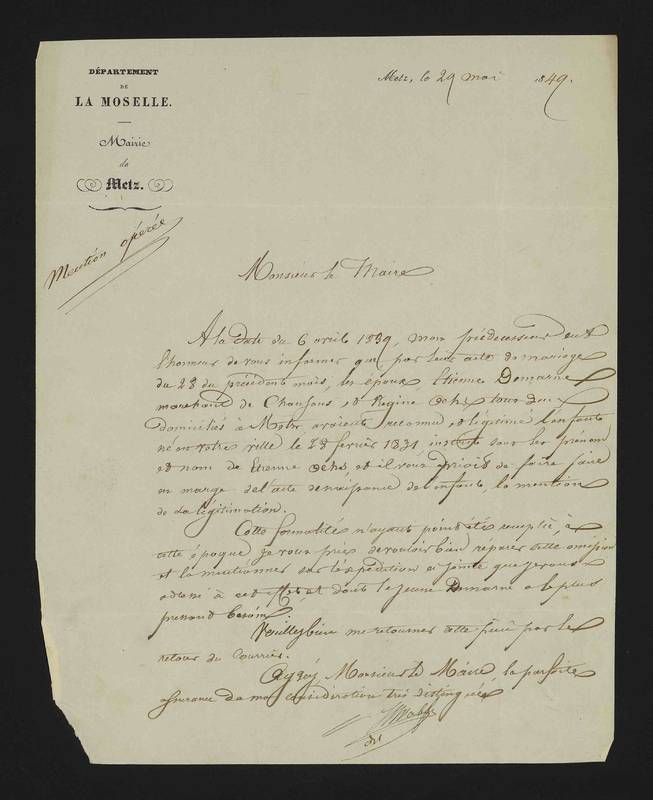 DÉPARTEMENT
DE
LA MOSELLE.
Mairie
de
Metz.
Metz, le 29 mai 1849.
Mention opérée
Monsieur le Maire
A la date du 6 avril 1839, mon prédécesseur eut
l'honneur de vous informer que par leur acte de mariage
du 28 du précédent mois, les époux Etienne Demarne
marchand de Chansons et Régine Ochs tous deux
domiciliés à Metz avaient reconnu et légitimé l'enfant
né en votre ville le 28 fevrier 1831, inscrit sous les prénom
et nom de Etienne Ochs, et il vous de faire faire
en marge de l'acte de naissance de l'enfant, la mention
de la légitimation.
Cette formalité n'ayant point été remplie, à
cette époque je vous prie de vouloir bien réparer cette omission
et la mentionner sur l'expédition ci jointe que je vous
adresse à cet effet et dont le jeune Demarne a le plus
pressant besoin.
Veuillez bien me retourner cette pièce par le
retour du Courrier.
Agréez, Monsieur le Maire, la parfaite
assurance de ma considération très distinguée